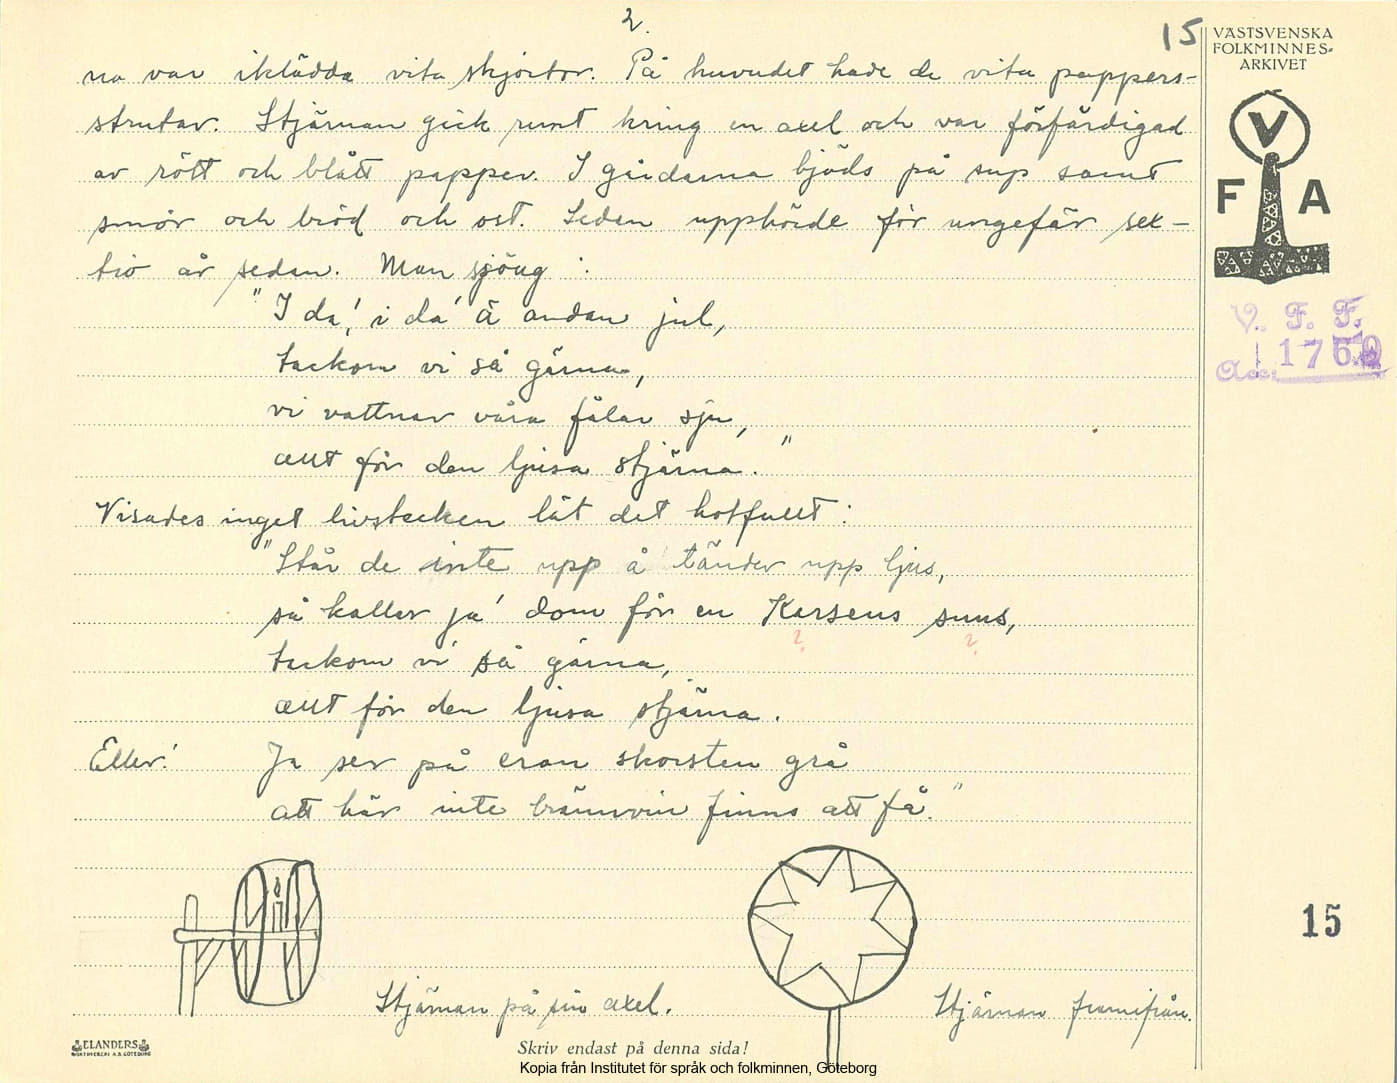 2.
15
VÄSTSVENSKA
FOLKMINNES-
ARKIVET
V
F A
V. F. F.
Acc. 1750
na var iklädda vita skjortor. På huvudet hade de vita pappers-
strutar. Stjärnan gick runt kring en axel och var förfärdigad
av rött och blått papper. I gårdarna bjöds på sup samt
smör och bröd och ost. Seden upphörde för ungefär sex-
tio år sedan. Man sjöng:
"I da', i da' ä andan jul,
tackom vi så gärna,
vi vattnar våra fålar sju,
allt för den ljusa stjärna."
Visades inget livstecken lät det hotfullt:
"Står de inte upp å tänder upp ljus,
så kallar ja' dom för en Karsens snus,
? ?
tackom vi så gärna,
allt för den ljusa stjärna.
Eller: Ja ser på eran skorsten grå
att här inte brännvin finns att få."
15
Stjärnan på sin axel.
Stjärnan framifrån.
ELANDERS
Skriv endast på denna sida!
Kopia från Institutet för språk och folkminnen, Göteborg